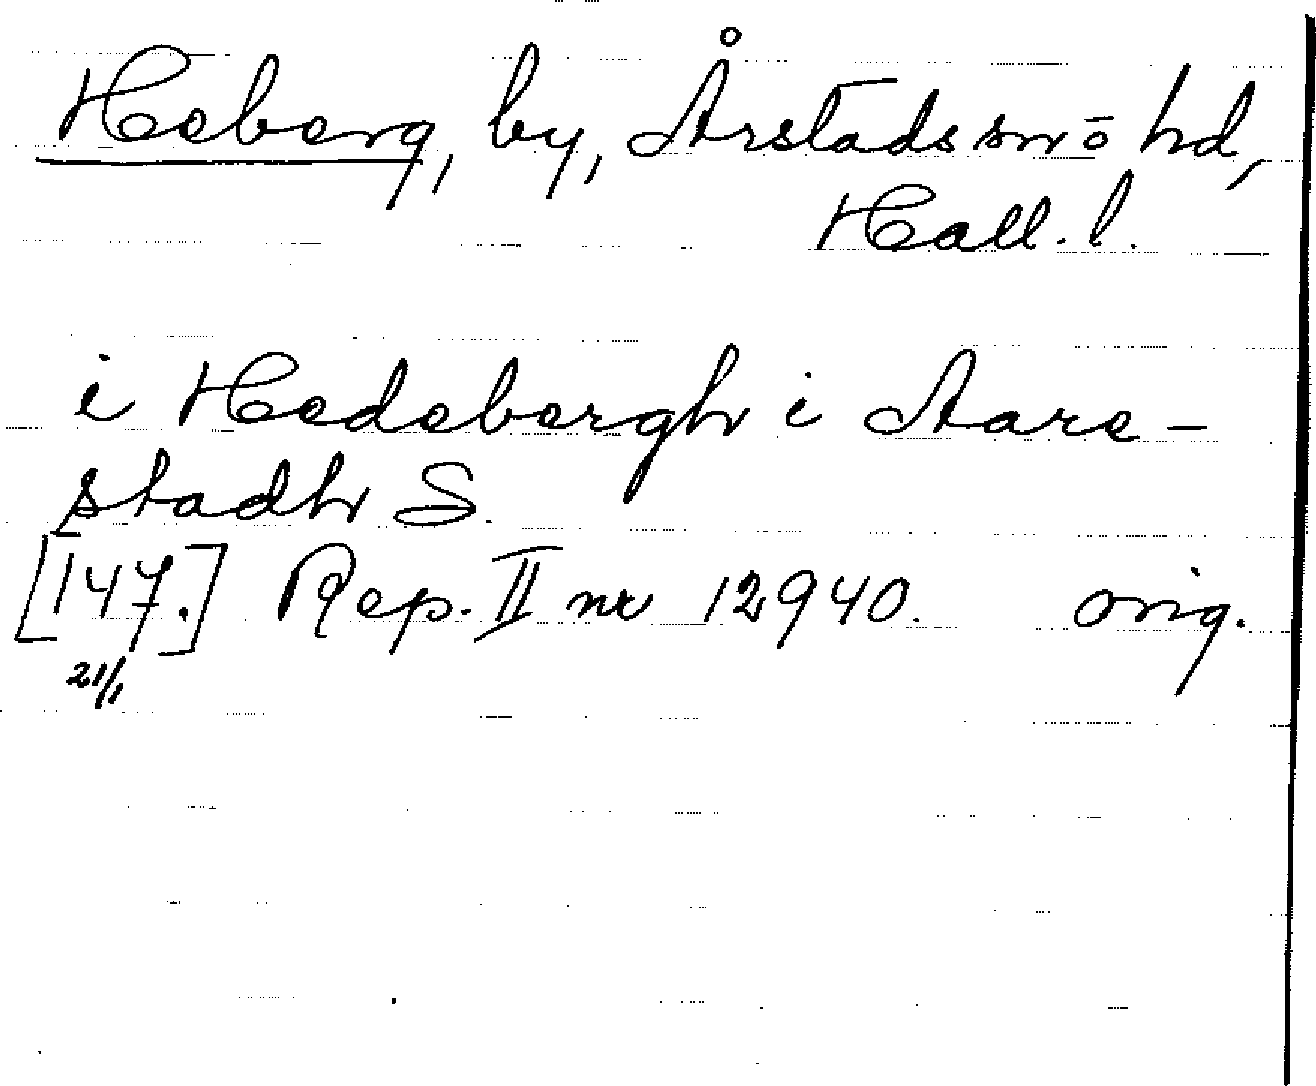 Heberg, by, Årstads sn ō hd,
Hall. l.
i Hedebergh i Aare-
stadh S.
[147.] Rep. II nr 12940. orig.
21/1